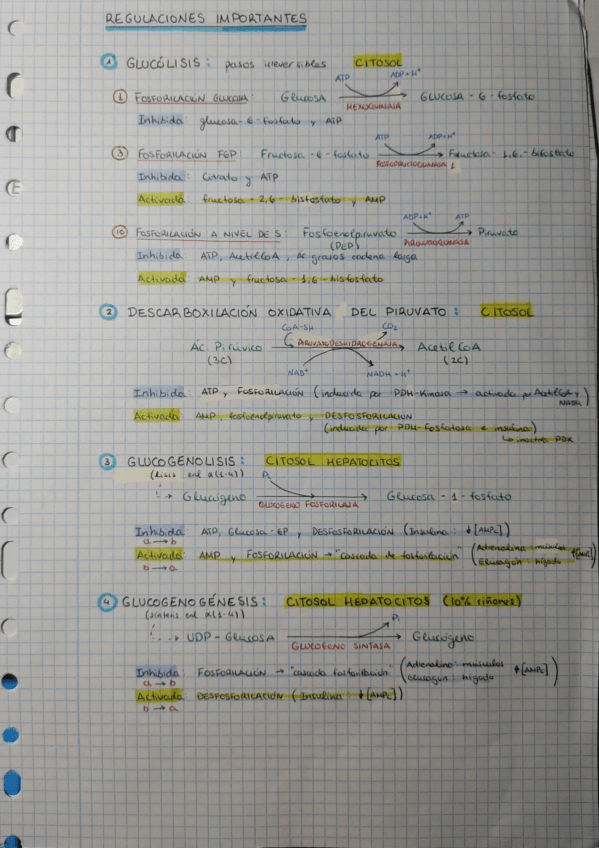 REGULACIONES IMPORTANTES
1 GLUCÓLISIS: pasos irreversibles CITOSOL
ATP ADP + H+
1 FOSFORILACIÓN GLUCOSA: Glucosa → GLUCOSA - 6 - fosfato
HEXOQUINASA
Inhibida: glucosa - 6 - fosfato y ATP
ATP ADP + H+
3 FOSFORILACIÓN F6P: Fructosa - 6 - fosfato → Fructosa - 1,6 - bifosfato
FOSFOFRUCTOQUINASA 1
Inhibida: Citrato y ATP
Activada: fructosa - 2,6 - bisfosfato y AMP
ADP + H+ ATP
10 FOSFORILACIÓN A NIVEL DE S: Fosfoenolpiruvato → Piruvato
(PEP) PIRUVATOQUINASA
Inhibida: ATP, Acetil CoA, ác grasos cadena larga
Activada: AMP y fructosa - 1,6 - bisfosfato
2 DESCARBOXILACIÓN OXIDATIVA DEL PIRUVATO: CITOSOL
CoA-SH CO2
PIRUVATO DESHIDROGENASA
Ac. Pirúvico → Acetil CoA
(3C) (2C)
NAD+ NADH + H+
Inhibida: ATP y FOSFORILACIÓN (inducida por PDH-Kinasa → activada por Acetil CoA y NADH)
Activada: AMP, fosfoenolpiruvato y DESFOSFORILACIÓN
(inducida por PDH-Fosfatasa e insulina)
↳ inactiva PDK
3 GLUCOGENOLISIS: CITOSOL HEPATOCITOS
(lisis enl α(1-4)) Pi
Glucógeno → Glucosa - 1 - fosfato
GLUCÓGENO FOSFORILASA
Inhibida: ATP, Glucosa - 6P y DESFOSFORILACIÓN (Insulina: ↓[AMPc])
a → b
Activada: AMP y FOSFORILACIÓN → "cascada de fosforilación" (Adrenalina: músculos Glucagón: hígado ↑[AMPc])
b → a
4 GLUCOGENOGÉNESIS: CITOSOL HEPATOCITOS (10% riñones)
(síntesis enl α(1-4)) Pi
UDP - Glucosa → Glucógeno
GLUCÓGENO SINTASA
Inhibida: FOSFORILACIÓN → "cascada fosforilación" (Adrenalina: músculos Glucagón: hígado ↑[AMPc])
a → b
Activada: DESFOSFORILACIÓN (Insulina: ↓[AMPc])
b → a